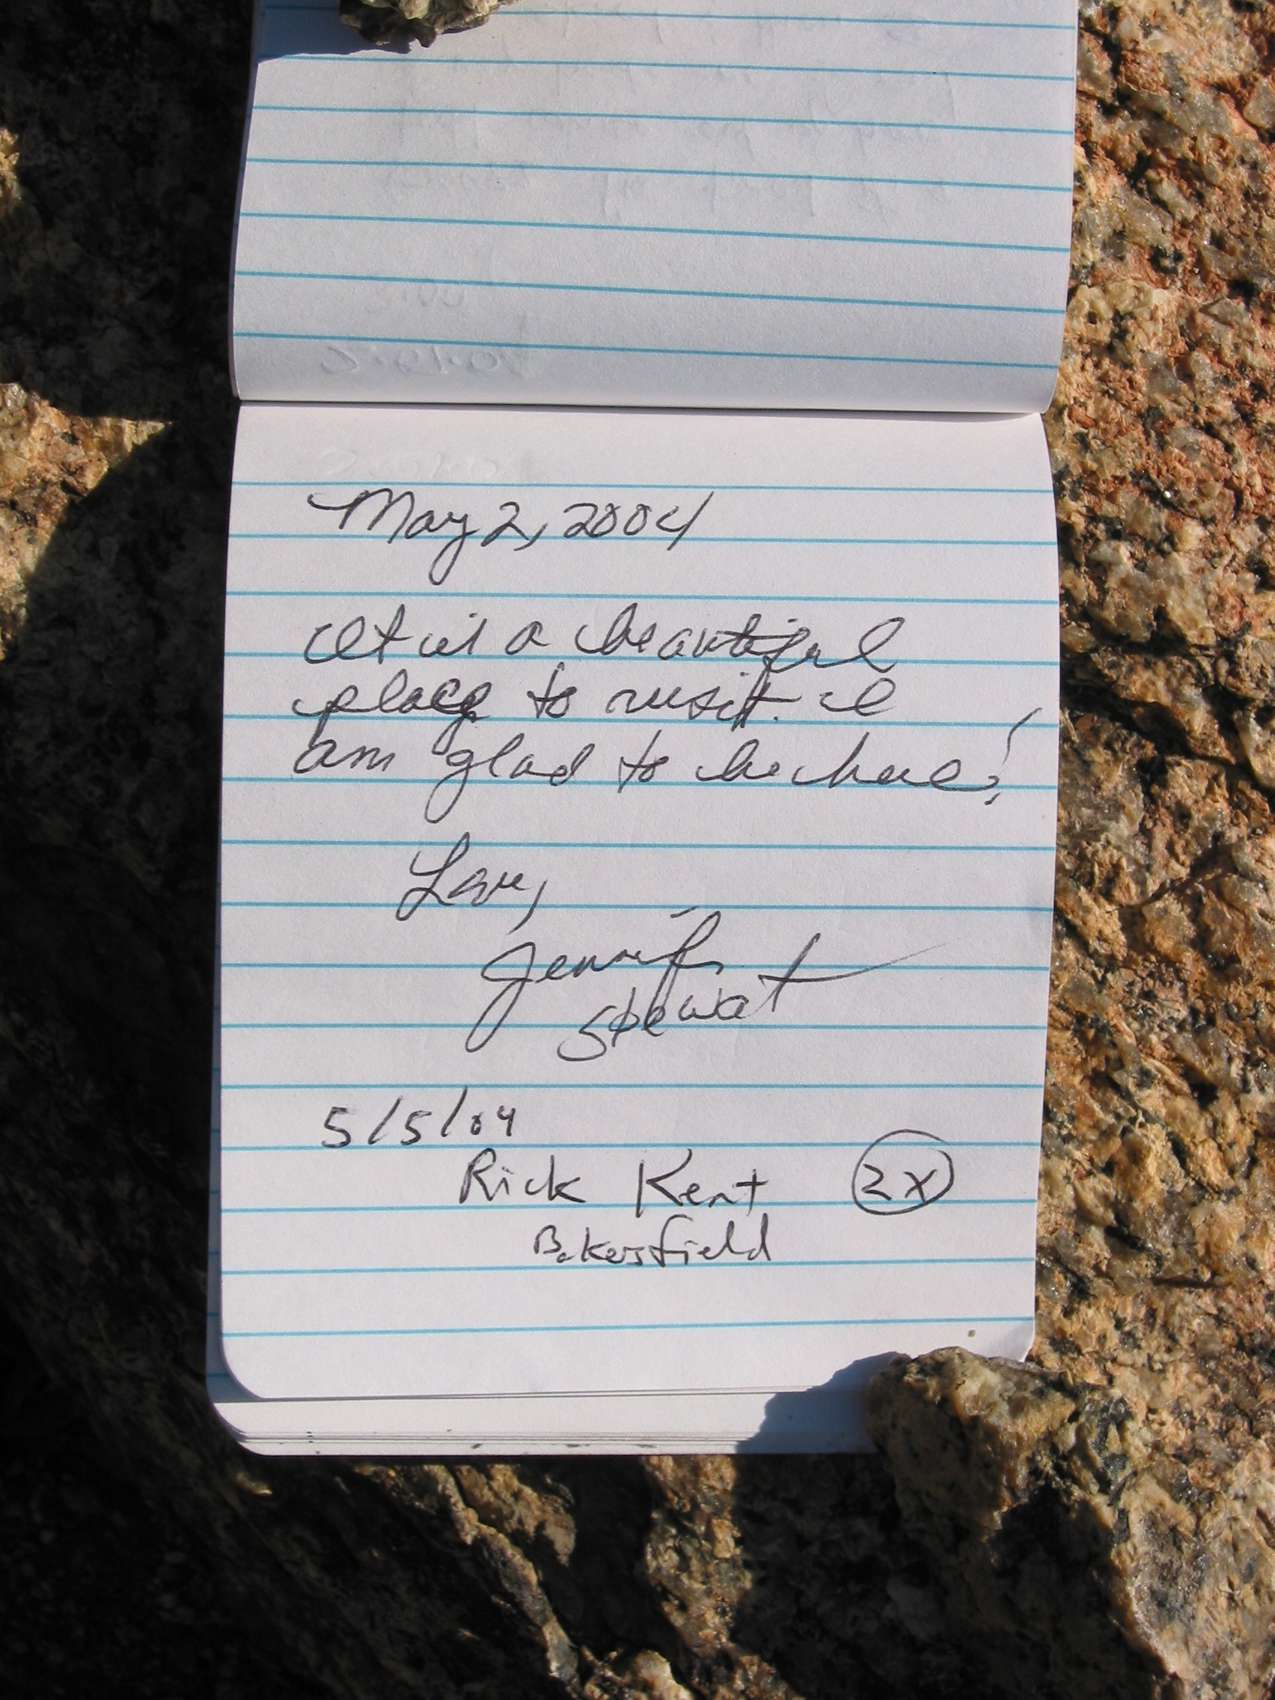 May 2, 2004
It is a beautiful
place to visit. I
am glad to be here!
Love,
Jennifer
Stewart
5/5/04
Rick Kent 2x
Bakersfield